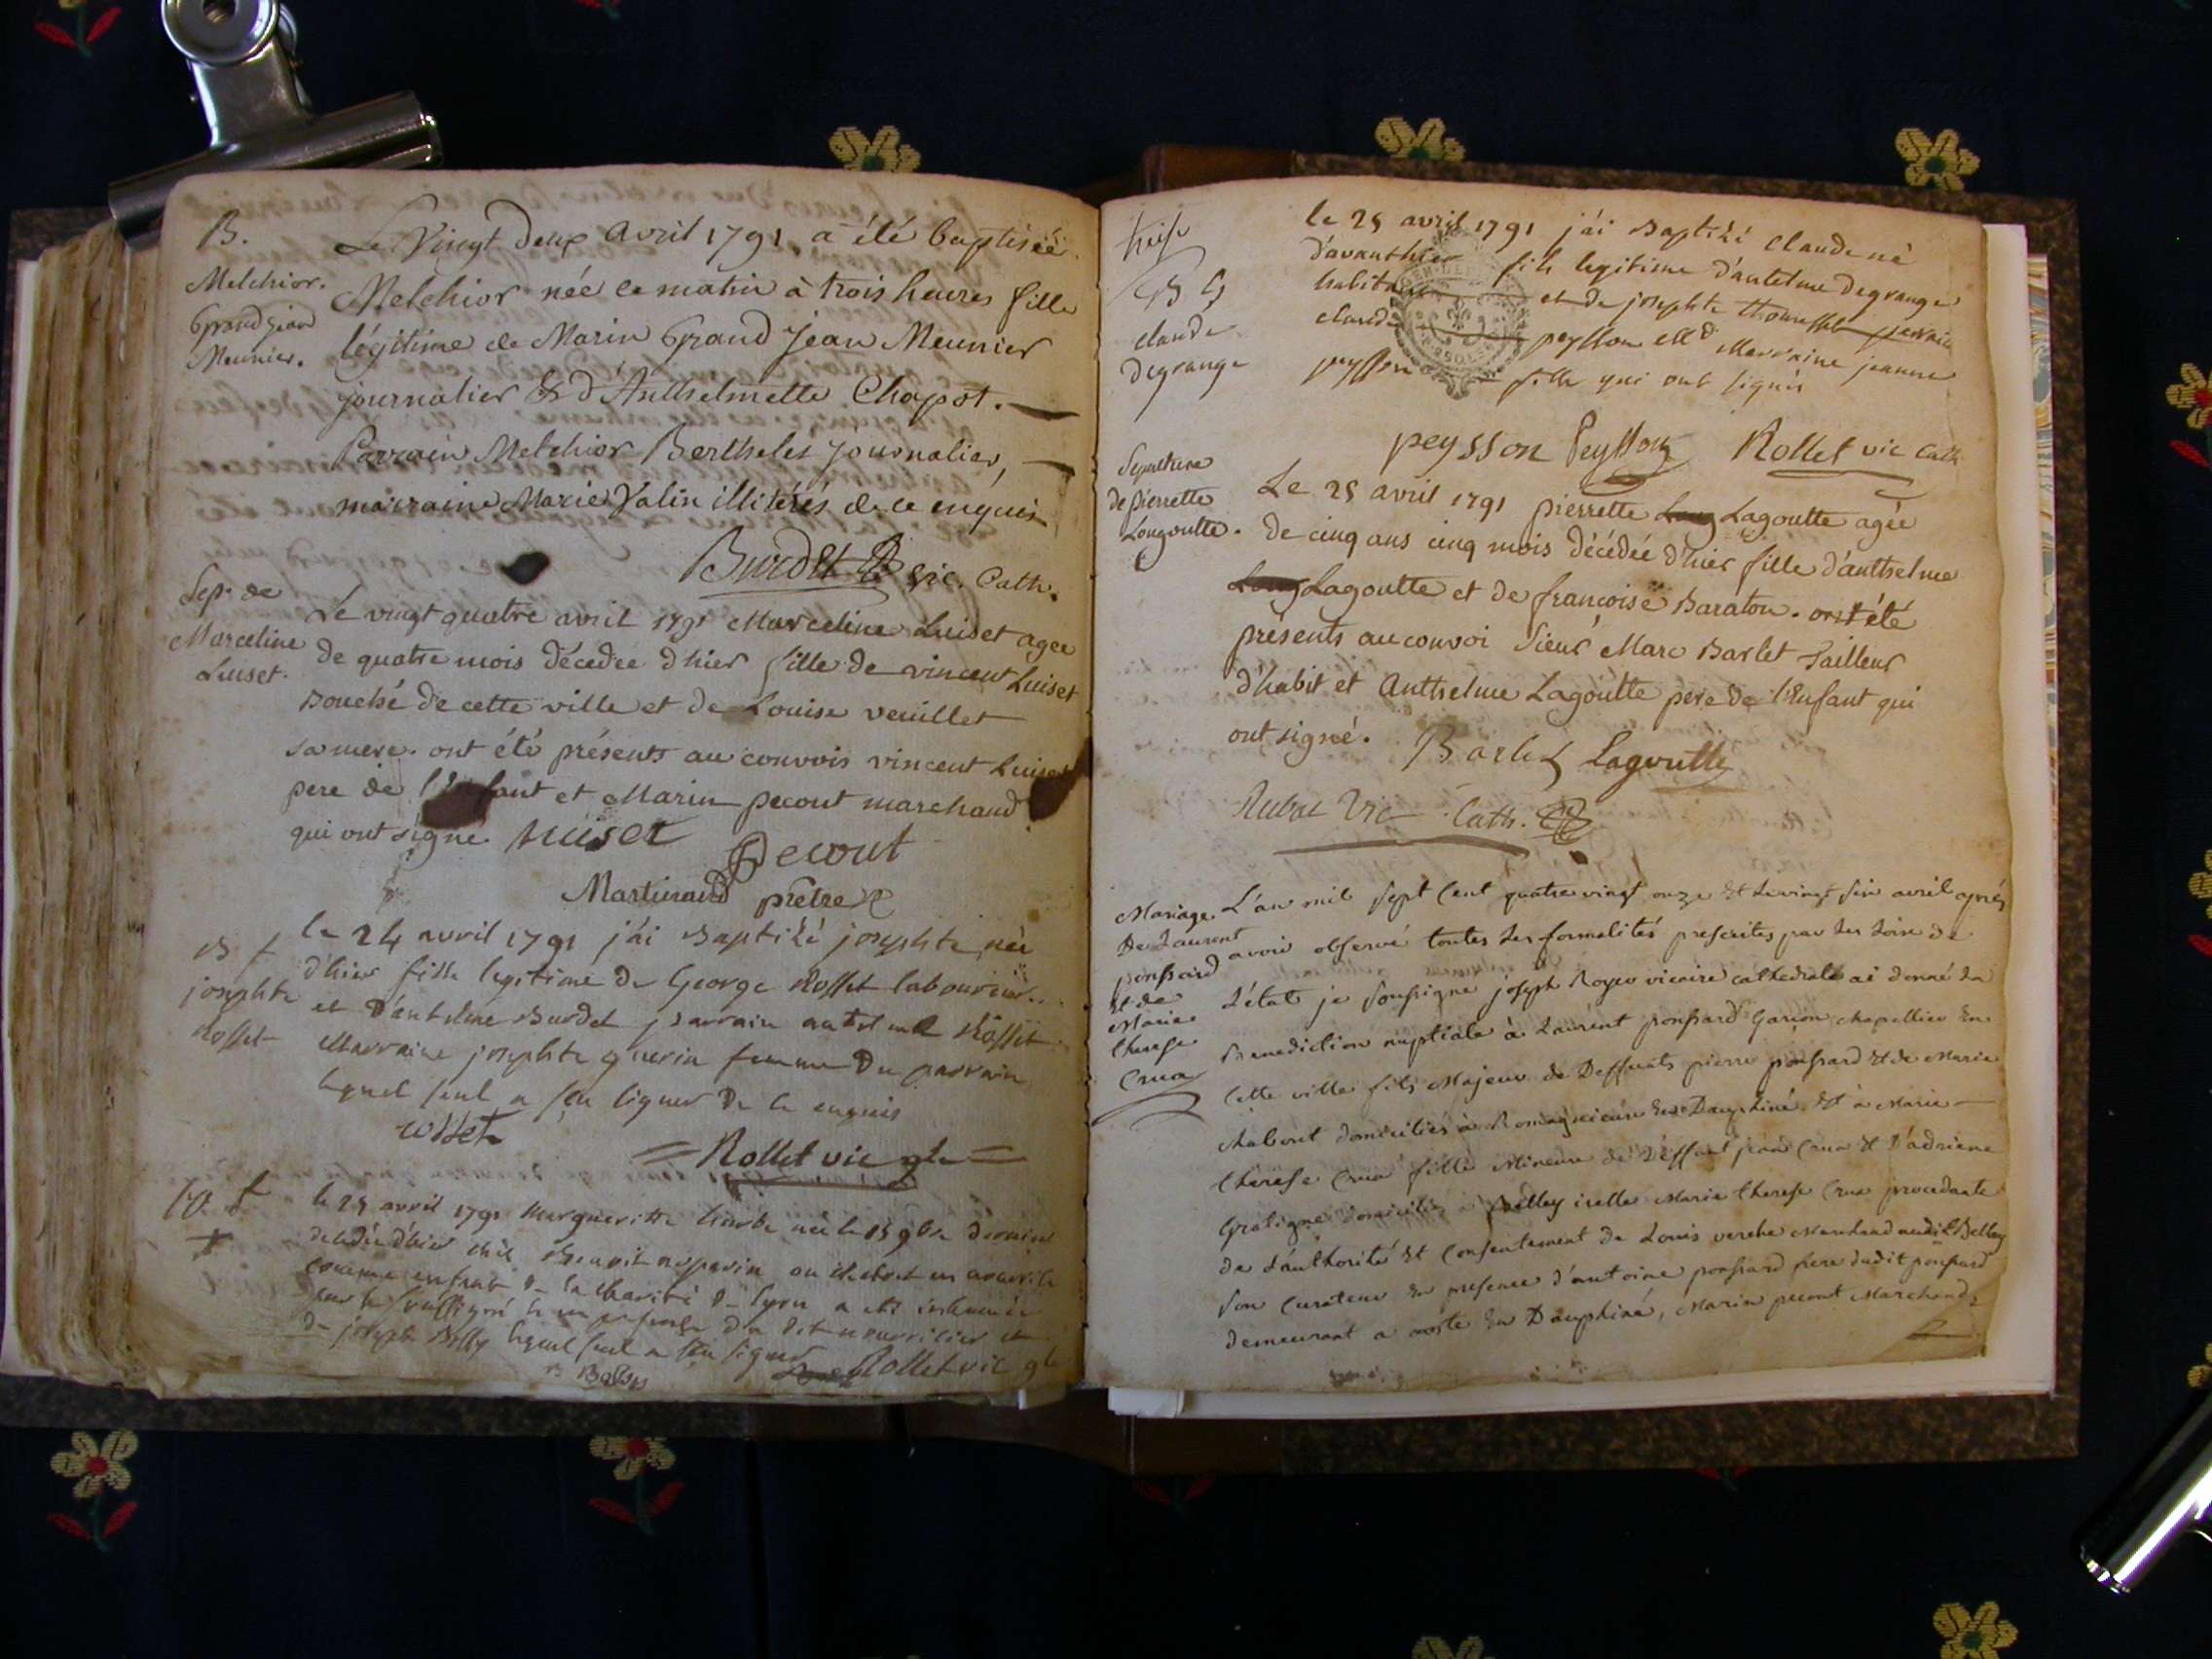 B.
Melchior.
Grand Jean
Meunier.
Le Vingt Deux Avril 1791 a été baptiséé
Melchior née ce matin à trois heures fille
légitime de Marin Grand Jean Meunier
journalier & d'Anthelmette Chapot.
Parrain Melchior Berthelet journalier,
marraine Marie Jalin illitérés de ce enquis
Burdet vic. Cath.
Sep. de
Marceline
Luiset.
Le vingt quatre avril 1791 Marceline Luiset agee
de quatre mois décedée d'hier fille de vincent Luiset
Bouché de cette ville et de Louise veuillet
sa mere. ont été présents au convois vincent Luiset
pere de l'Enfant et Marin pecout marchand
qui ont signé. Luiset
Pecout
Martinand prêtre
B f
josephte
Rosset
le 24 avril 1791 j'ái Baptizé josephte née
d'hier fille legitime de George Rosset laboureur
et d'antelme Burdet parrain antelme Rosset
Marraine josephte guerin femme du parrain
lequel seul a sçu signer de ce enquis
rosset
Rollet vic gle
le 25 avril 1791 Margueritte née le 15 9bre dernier
décédée d'hier chez
comme enfant de la charité de Lyon a été inhumée
par le soussigné en presence du dit nourricier et
de joseph Bolly lequel seul a sçu signer
Bolly
Rollet vic gle
treise
B G
claude
degrange
le 25 avril 1791 j'ái Baptizé claude né
d'avanthier fils legitime d'antelme degrange
habitant et de josephte parrain
claude peysson et Marraine jeanne
peysson fille qui ont signés
peysson Peysson Rollet vic Cath
Sepulture
de pierrette
Longoutte.
Le 25 avril 1791 pierrette Long Lagoutte agée
de cinq ans cinq mois décédée d'hier fille d'anthelme
Long Lagoutte et de françoise Baraton. ont été
présents au convoi Sieur Marc Barlet Tailleur
d'habit et Anthelme Lagoutte pere de l'Enfant qui
ont signé.
Barlet Lagoutte
Rubat Vic Cath.
Mariage
De Laurent
ponssard
Et de
Marie
therese
Crua
L'an mil sept cent quatre vingt onze Et le vingt six avril après
avoir observé toutes les formalités prescrites par les loix de
L'état je soussigné joseph Royer vicaire cathedrale ai donné la
Benediction nuptiale à Laurent ponssard Garçon chapellier en
cette ville fils Majeur de Deffunts pierre ponssard Et de Marie
chabout domiciliés à Romagnieu en Dauphiné Et à Marie
therese Crua fille Mineure de Deffunt jean Crua Et D'adriene
domiciliée à Belley icelle Marie therese Crua procedante
de L'authorité Et Consentement de Louis verche Marchand audit Belley
son Curateur en presence d'antoine ponssard frere dudit ponssard
demeurant a en Dauphiné, Marin pecout Marchand